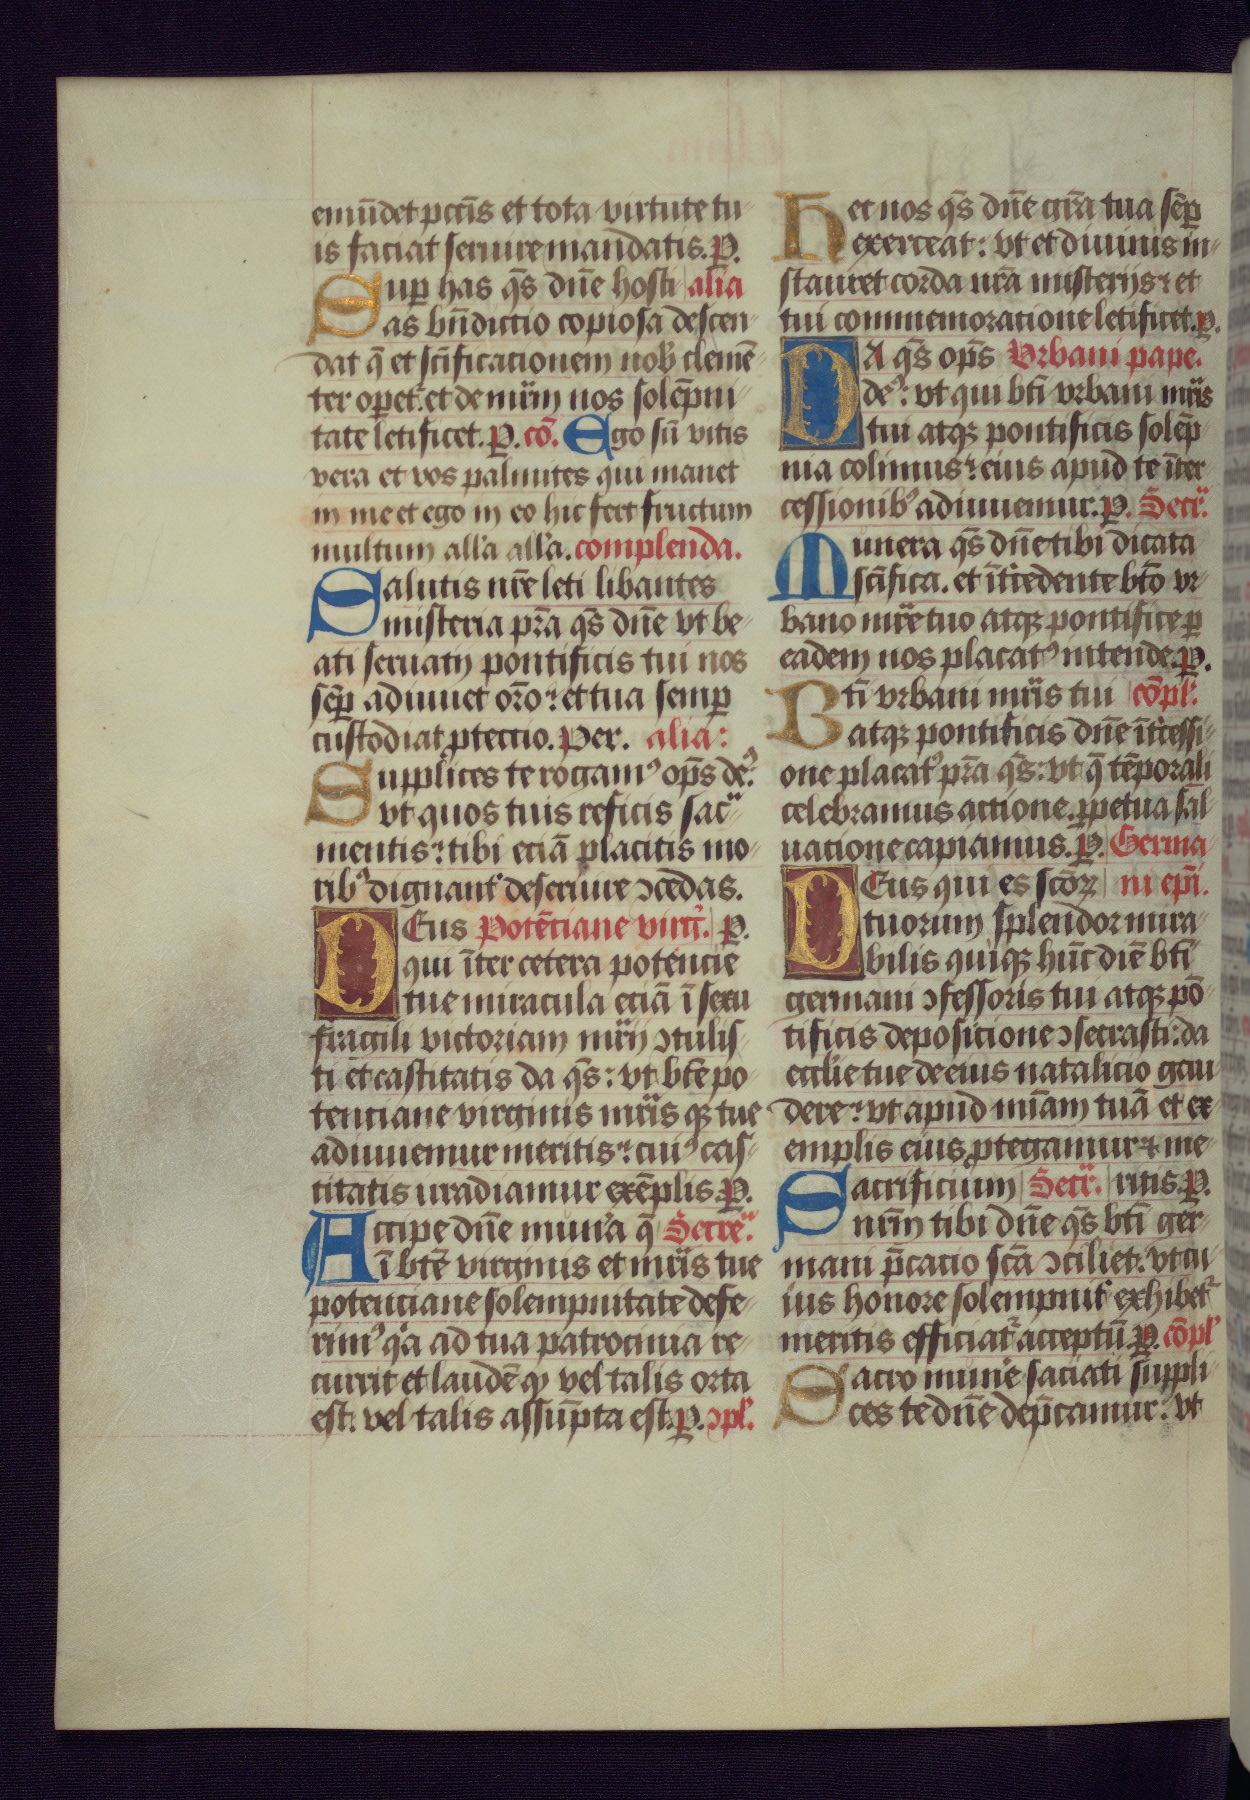 emūdet pctīs et tota virtute tu
is faciat seruire mandatis. P.
Sup has qs̄ dn̄e hosti alia
as bn̄dictio copiosa descen
dat q̄ et sc̄ificationem nob̾ clemē
ter opet᷑. et de mr̄m nos solēpni
tate letificet. P. cō. Ego sū vitis
vera et vos palmites qui manet
in me et ego in eo hic fert fructum
multum all'a all'a. complenda.
Salutis nr̄e leti libantes
misteria pr̄a qs̄ dn̄e vt be
ati seruatij pontificis tui nos
sēp adiuuet orō: et tua semp
custodiat ptectio. Per. alia:
Supplices te rogam᷒ op̄s de᷒.
vt quos tuis reficis sac̄
mentis: tibi eciā placitis mo
rib᷒ dignant᷑ deseruire ↄcedas.
DEus Potēciane virḡ. P.
qui īter cetera potencie
tue miracula eciā ī sexu
fragili victoriam mr̄ij ↄtulis
ti et castitatis da qs̄: vt bt̄e po
tenciane virginis mr̄is qꝫ tue
adiuuemur meritis: cui᷒ cas
titatis iradiamur exēplis. P.
Accipe dn̄e mun̄a q̄ Secre᷑.
ī bt̄e virginis et mr̄is tue
potenciane solempnitate defe
rim᷒ q̄a ad tua patrocinia re
currit et laudē qꝫ vel talis orta
est. vel talis assūpta est. P. ↄpl᷒.
Het nos qs̄ dn̄e gr̄a tua sēp
exerceat: vt et diuinis in
stauret corda nr̄a misterijs: et
tui commemoratione letificet. P.
DA qs̄ op̄s Vrbani pape.
de᷒: vt qui bt̄i vrbani mr̄is
tui atqꝫ pontificis solēp
nia colimus: eius apud te īter
cessionib᷒ adiuuemur. P. Secr᷑.
Munera qs̄ dn̄e tibi dicata
sc̄ifica. et īt̄cedente bt̄o vr
bano mr̄e tuo atqꝫ pontifice p
eadem nos placat᷒ intende. P.
Bt̄i vrbani mr̄is tui cōpl᷒.
atqꝫ pontificis dn̄e īt̄cessi
one placat᷒ pr̄a qs̄: vt q̄ tēporali
celebramus actione. ppetua sal
uatione capiamus. P. Germa
DEus qui es sc̄oꝝ ni ep̄i.
tuorum splendor mira
bilis quiqꝫ hūc diē bt̄i
germani ↄfessoris tui atqꝫ pō
tificis deposicione ↄsecrasti: da
eccl'ie tue de eius natalicio gau
dere: vt apud mīam tuā et ex
emplis eius ptegamur ⁊ me
Sacrificium Secr᷑. ritis. P.
nr̄m tibi dn̄e qs̄ bt̄i ger
mani p̄catio sc̄a ↄciliet: vt cu
ius honore solempnit᷑ exhibet᷑
meritis efficiat᷑ acceptū. P. cōpl᷒
Sacro mun̄e saciati suppli
ces te dn̄e dep̄camur: vt